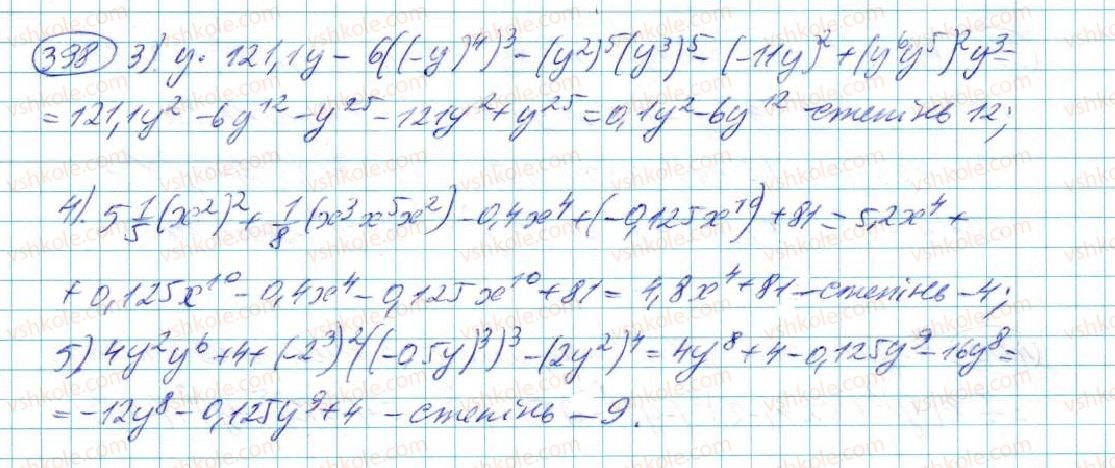 398 3). y · 121,1y - 6((-y)⁴)³ - (y²)⁵(y³)⁵ - (-11y)² + (y⁶y⁵)²y³ =
= 121,1y² - 6y¹² - y²⁵ - 121y² + y²⁵ = 0,1y² - 6y¹² - степінь 12;
4). 5 1/5 (x²)² + 1/8 (x³x⁵x²) - 0,4x⁴ + (-0,125x¹⁰) + 81 = 5,2x⁴ +
+ 0,125x¹⁰ - 0,4x⁴ - 0,125x¹⁰ + 81 = 4,8x⁴ + 81 - степінь - 4;
5) 4y²y⁶ + 4 + (-2³)²((-0,5y)³)³ - (2y²)⁴ = 4y⁸ + 4 - 0,125y⁹ - 16y⁸ =
= -12y⁸ - 0,125y⁹ + 4 - степінь - 9.